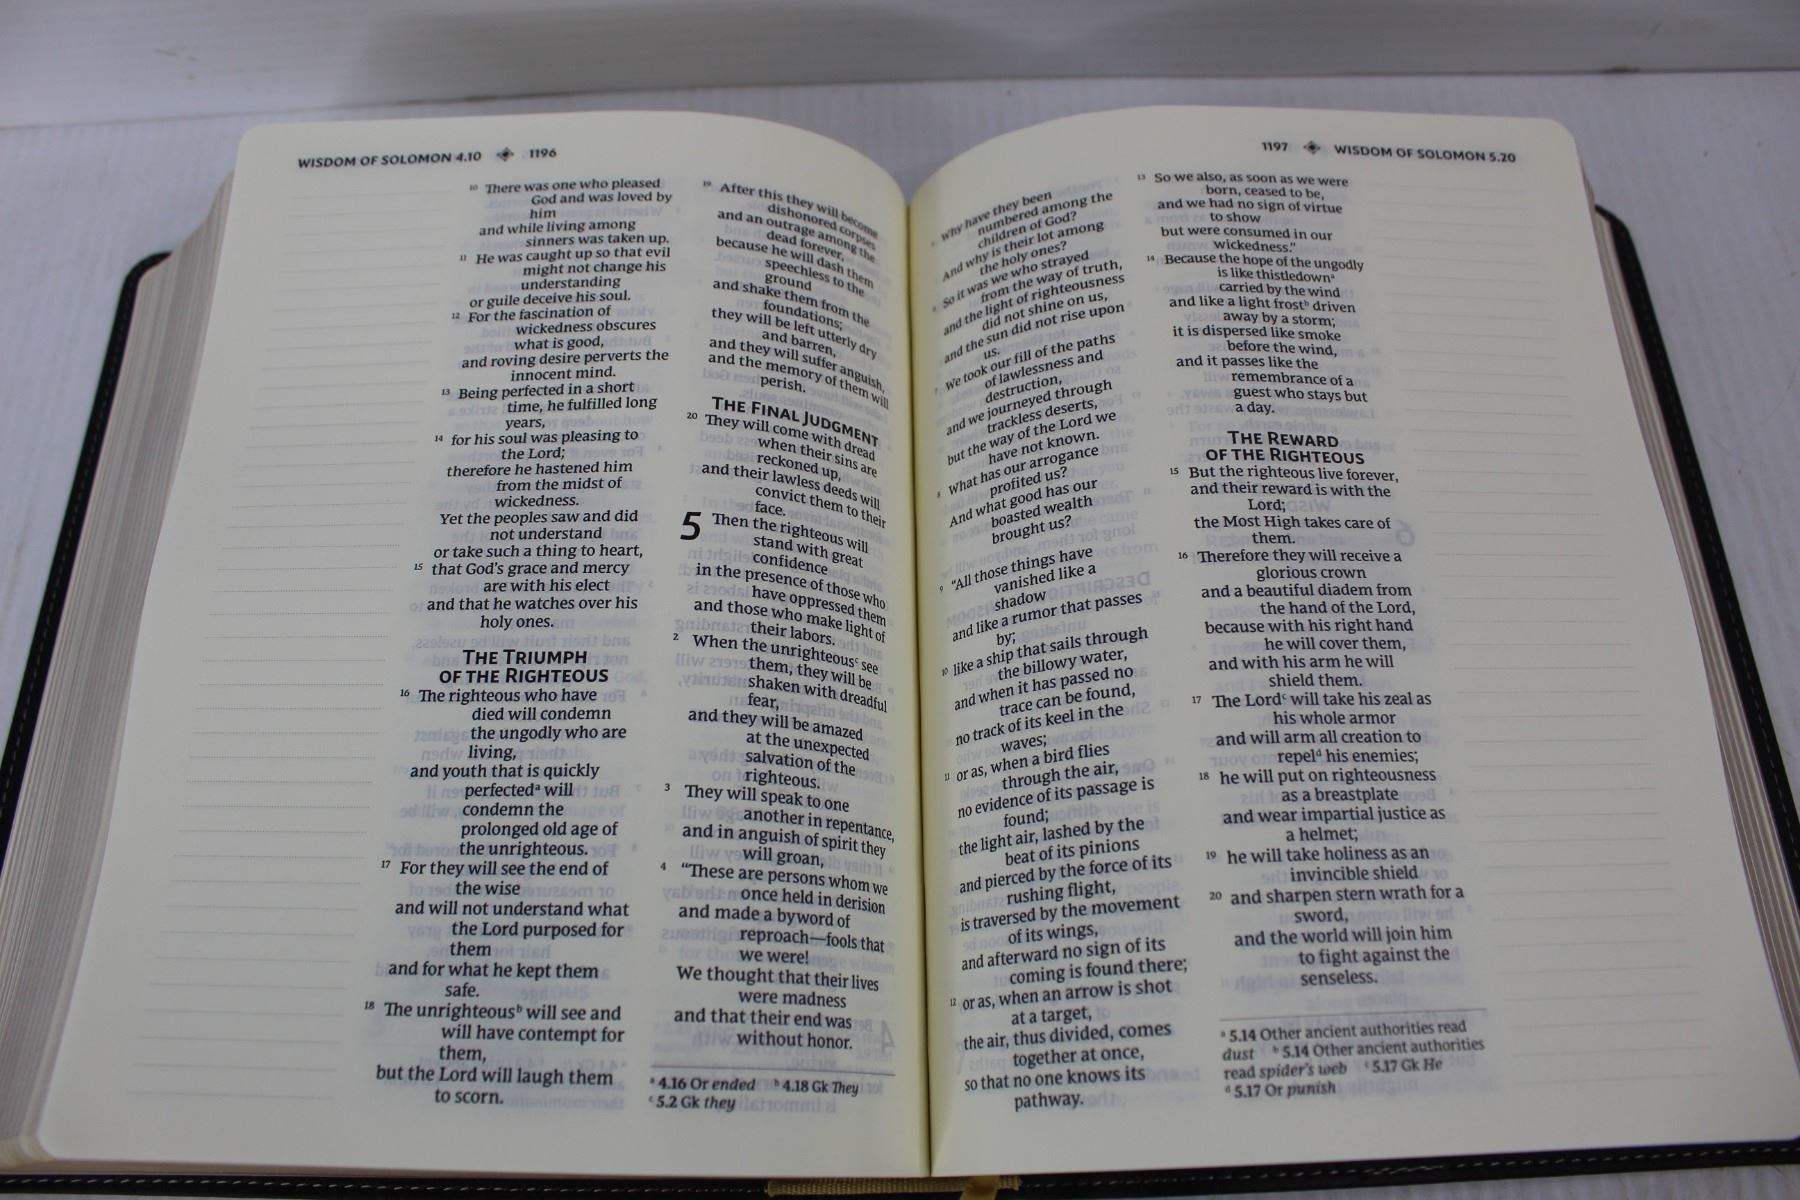 WISDOM OF SOLOMON 4.10 1196
10 There was one who pleased
God and was loved by
him
and while living among
sinners was taken up.
11 He was caught up so that evil
might not change his
understanding
or guile deceive his soul.
12 For the fascination of
wickedness obscures
what is good,
and roving desire perverts the
innocent mind.
13 Being perfected in a short
time, he fulfilled long
years,
14 for his soul was pleasing to
the Lord;
therefore he hastened him
from the midst of
wickedness.
Yet the peoples saw and did
not understand
or take such a thing to heart,
15 that God's grace and mercy
are with his elect
and that he watches over his
holy ones.
THE TRIUMPH
OF THE RIGHTEOUS
16 The righteous who have
died will condemn
the ungodly who are
living,
and youth that is quickly
perfectedᵃ will
condemn the
prolonged old age of
the unrighteous.
17 For they will see the end of
the wise
and will not understand what
the Lord purposed for
them
and for what he kept them
safe.
18 The unrighteousᵇ will see and
will have contempt for
them,
but the Lord will laugh them
to scorn.
19 After this they will become
dishonored corpses
and an outrage among the
dead forever,
because he will dash them
speechless to the
ground
and shake them from the
foundations;
they will be left utterly dry
and barren,
and they will suffer anguish,
and the memory of them will
perish.
THE FINAL JUDGMENT
20 They will come with dread
when their sins are
reckoned up,
and their lawless deeds will
convict them to their
face.
5 Then the righteous will
stand with great
confidence
in the presence of those who
have oppressed them
and those who make light of
their labors.
2 When the unrighteousᶜ see
them, they will be
shaken with dreadful
fear,
and they will be amazed
at the unexpected
salvation of the
righteous.
3 They will speak to one
another in repentance,
and in anguish of spirit they
will groan,
4 "These are persons whom we
once held in derision
and made a byword of
reproach—fools that
we were!
We thought that their lives
were madness
and that their end was
without honor.
ᵃ 4.16 Or ended ᵇ 4.18 Gk They
ᶜ 5.2 Gk they
1197 WISDOM OF SOLOMON 5.20
5 Why have they been
numbered among the
children of God?
And why is their lot among
the holy ones?
6 So it was we who strayed
from the way of truth,
and the light of righteousness
did not shine on us,
and the sun did not rise upon
us.
7 We took our fill of the paths
of lawlessness and
destruction,
and we journeyed through
trackless deserts,
but the way of the Lord we
have not known.
8 What has our arrogance
profited us?
And what good has our
boasted wealth
brought us?
9 "All those things have
vanished like a
shadow
and like a rumor that passes
by;
10 like a ship that sails through
the billowy water,
and when it has passed no
trace can be found,
no track of its keel in the
waves;
11 or as, when a bird flies
through the air,
no evidence of its passage is
found;
the light air, lashed by the
beat of its pinions
and pierced by the force of its
rushing flight,
is traversed by the movement
of its wings,
and afterward no sign of its
coming is found there;
12 or as, when an arrow is shot
at a target,
the air, thus divided, comes
together at once,
so that no one knows its
pathway.
13 So we also, as soon as we were
born, ceased to be,
and we had no sign of virtue
to show
but were consumed in our
wickedness."
14 Because the hope of the ungodly
is like thistledownᵃ
carried by the wind
and like a light frostᵇ driven
away by a storm;
it is dispersed like smoke
before the wind,
and it passes like the
remembrance of a
guest who stays but
a day.
THE REWARD
OF THE RIGHTEOUS
15 But the righteous live forever,
and their reward is with the
Lord;
the Most High takes care of
them.
16 Therefore they will receive a
glorious crown
and a beautiful diadem from
the hand of the Lord,
because with his right hand
he will cover them,
and with his arm he will
shield them.
17 The Lordᶜ will take his zeal as
his whole armor
and will arm all creation to
repelᵈ his enemies;
18 he will put on righteousness
as a breastplate
and wear impartial justice as
a helmet;
19 he will take holiness as an
invincible shield
20 and sharpen stern wrath for a
sword,
and the world will join him
to fight against the
senseless.
ᵃ 5.14 Other ancient authorities read
dust ᵇ 5.14 Other ancient authorities
read spider's web ᶜ 5.17 Gk He
ᵈ 5.17 Or punish